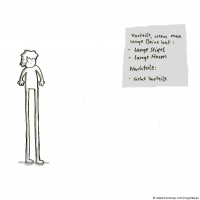 Vorteile, wenn man
lange Beine hat:
- lange Stiefel
- lange Hosen
Nachteile:
- siehe Vorteile